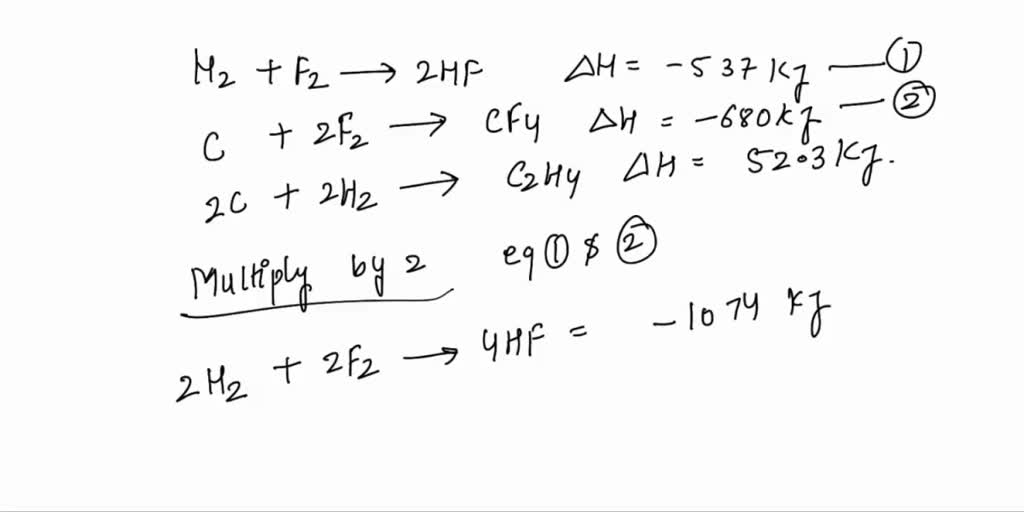 H2 + F2 → 2HF ΔH = -537 KJ — ①
C + 2F2 → CF4 ΔH = -680KJ — ②
2C + 2H2 → C2H4 ΔH = 52.3 KJ.
Multiply by 2 eq ① & ②
2H2 + 2F2 → 4HF = -1074 KJ